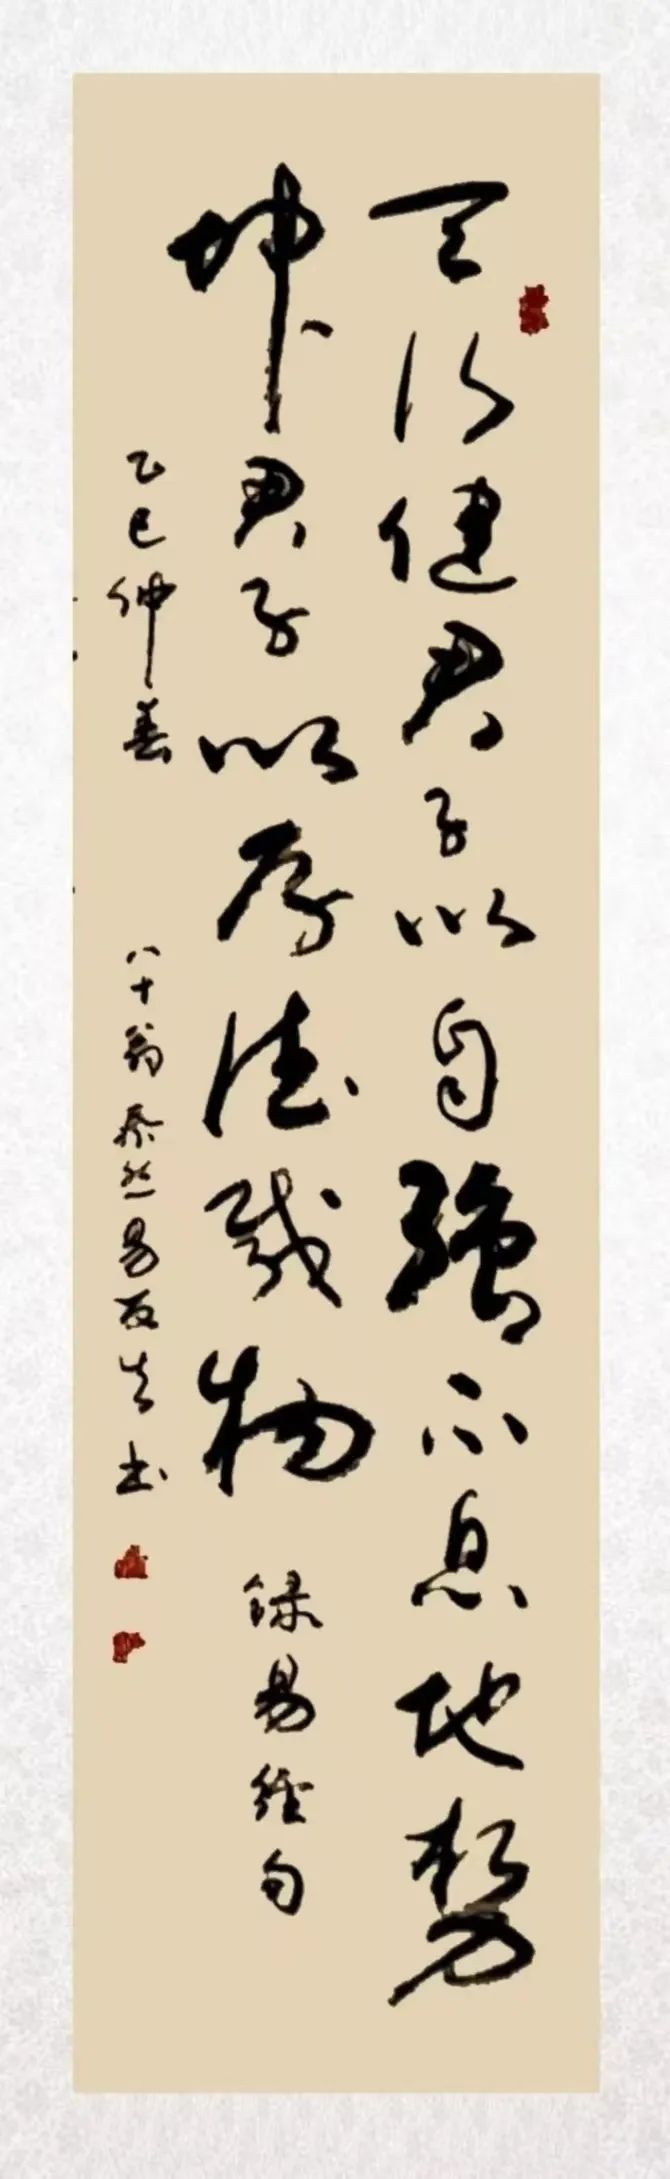 天行健君子以自強不息地勢
坤君子以厚德載物
録易經句
乙巳仲春
八十翁泰然易友吉书